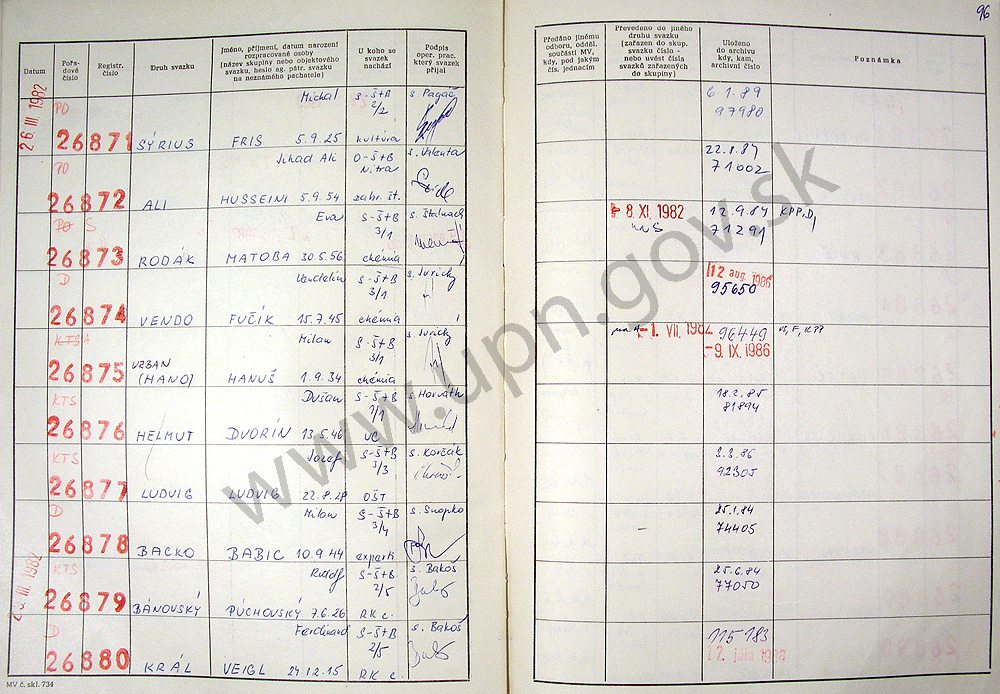 96
Datum
Pořadové číslo
Registr. číslo
Druh svazku
Jméno, příjmení, datum narození rozpracované osoby (název skupiny nebo objektového svazku, heslo ag. pátr. svazku na neznámého pachatele)
U koho se svazek nachází
Podpis oper. prac. který svazek přijal
Předáno jinému odboru, odděl. součásti MV, kdy, pod jakým čís. jednacím
Převedeno do jiného druhu svazku (zařazen do skup. svazku číslo - nebo uvést čísla svazků zařazených do skupiny)
Uloženo do archivu kdy, kam, archivní číslo
Poznámka
26 III. 1982
PO Michal S-Š+B s. Pagáč 6.1.89
2/2 97980
26871 SÝRIUS FRIS 5.9.25 kultúra
PO Jihad Ali O-Š+B s. Valenta 22.8.84
Nitra 71002
26872 ALI HUSSEINI 5.9.54 zahr. št.
PO S Eva S-Š+B s. Štalmach 8. XI. 1982 12.9.84 KPP, D,
3/1 na S 71291
26873 RODÁK MATOBA 30.5.56 chémia
D Vendelín S-Š+B s. Jurický 12 aug. 1986
3/1 95650
26874 VENDO FUČÍK 15.7.45 chémia
KTS A Milan S-Š+B s. Jurický na A -1. VII. 1982 96449 VI, F, KPP
3/1 -9. IX. 1986
26875 URBAN (HANO) HANUŠ 1.9.34 chémia
KTS Dušan S-Š+B s. Horváth 18.2.85
7/1 81894
26876 HELMUT DVORÍN 13.5.46 UC
KTS Jozef S-Š+B s. Korčák 3.3.86
3/3 92305
26877 LUDVIG LUDVIG 22.8.28 OŠT
D Milan S-Š+B s. Snopko 25.1.84
3/4 74405
26878 BACKO BABIC 10.9.44 experti
KTS Rudolf S-Š+B s. Bakoš 25.6.84
2/5 77050
26879 BÁNOVSKÝ PÚCHOVSKÝ 7.6.26 RK c.
D Ferdinand S-Š+B s. Bakoš 115 183
2/5
26880 KRÁL VEIGL 24.12.15 RK c.
III. 1982
MV č. skl. 734
www.upn.gov.sk